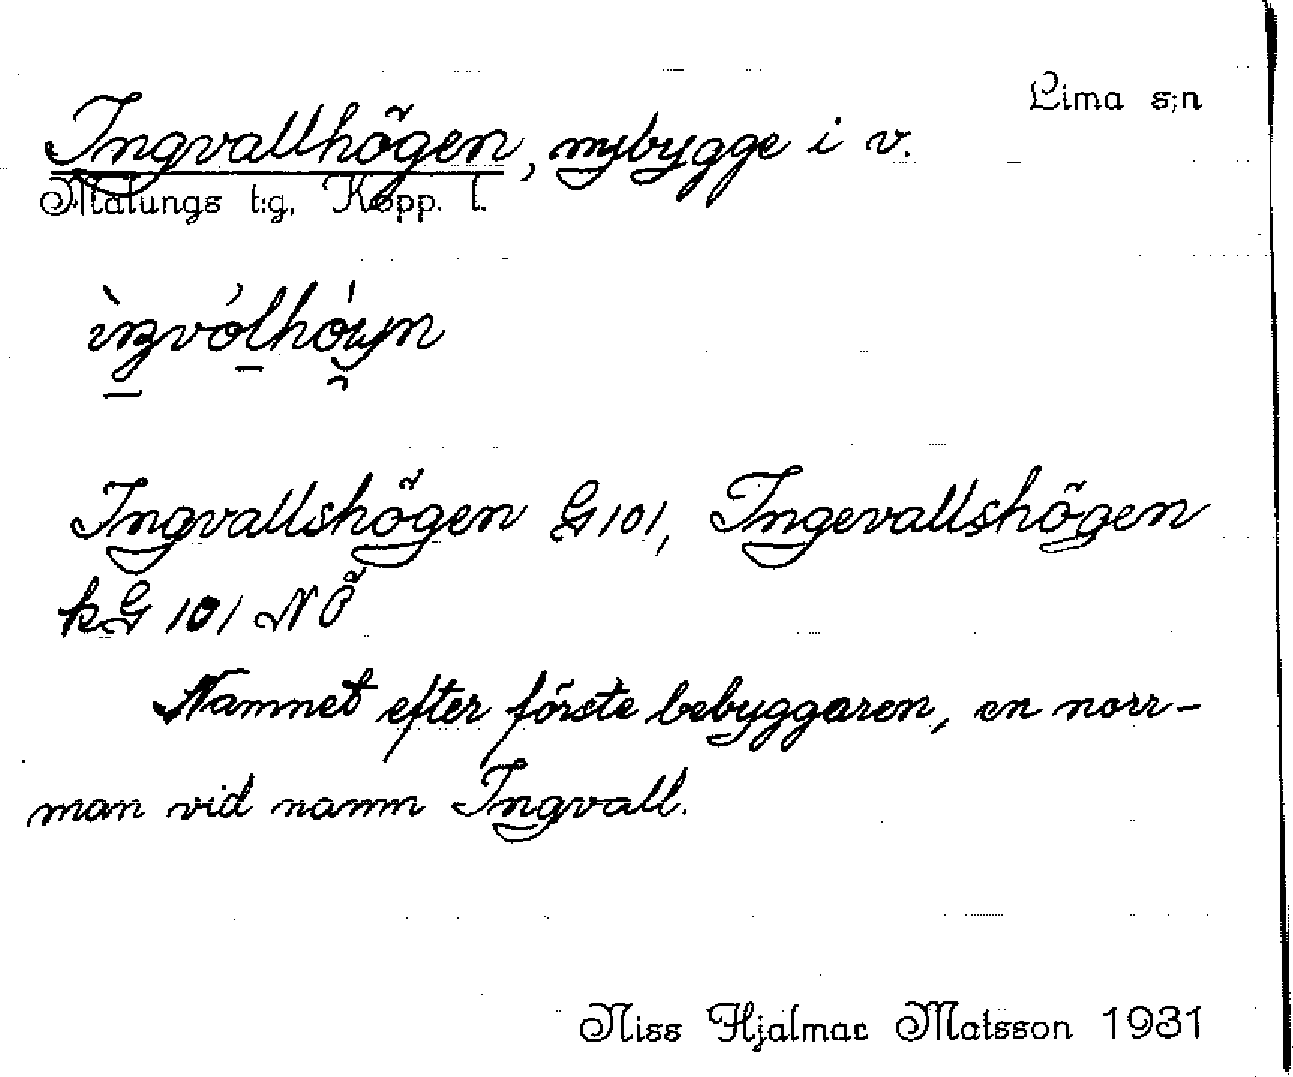 Lima s:n
Ingvallhögen, nybygge i v.
Malungs t:g, Kopp. l.
Ingvallshögen G 101, Ingevallshögen
kG 101 NÖ
Namnet efter förste bebyggaren, en norr-
man vid namn Ingvall.
Niss Hjalmar Matsson 1931